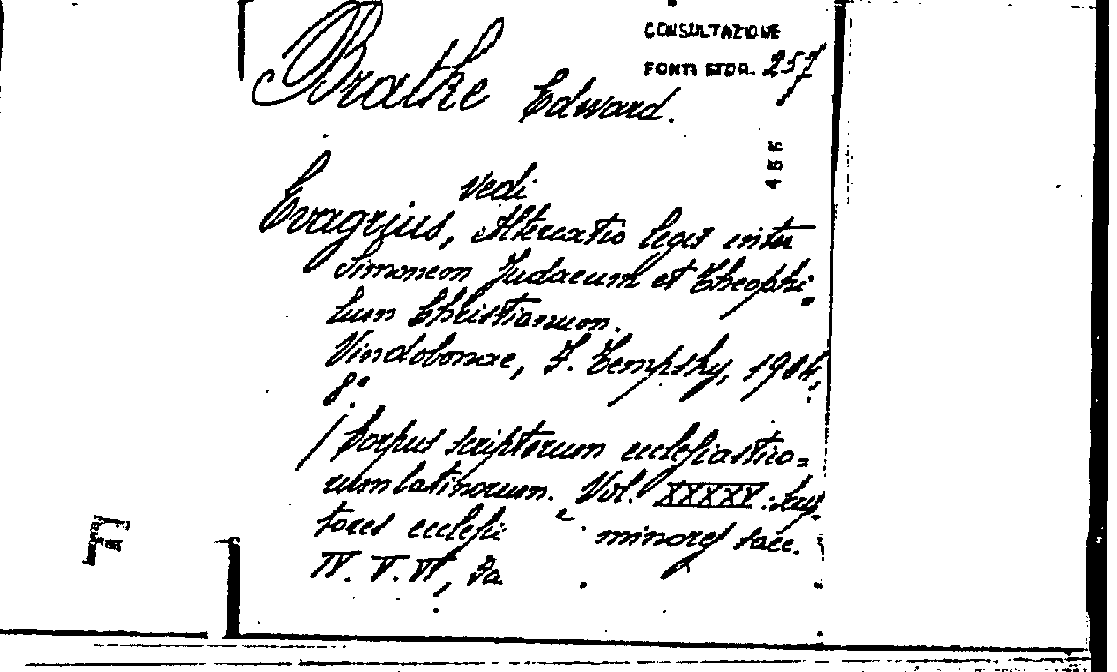 CONSULTAZIONE
FONTI STOR. 257
Bratke Edward.
455
vedi
Evagrius, Altercatio legis inter
Simonem Judaeum et Theophi=
lum Christianum.
Vindobonae, F. Tempsky, 1904,
8°.
/ Corpus scriptorum ecclesiastico=
rum latinorum. Vol. XXXXV.
tores ecclesi minores saec.
IV. V. VI,